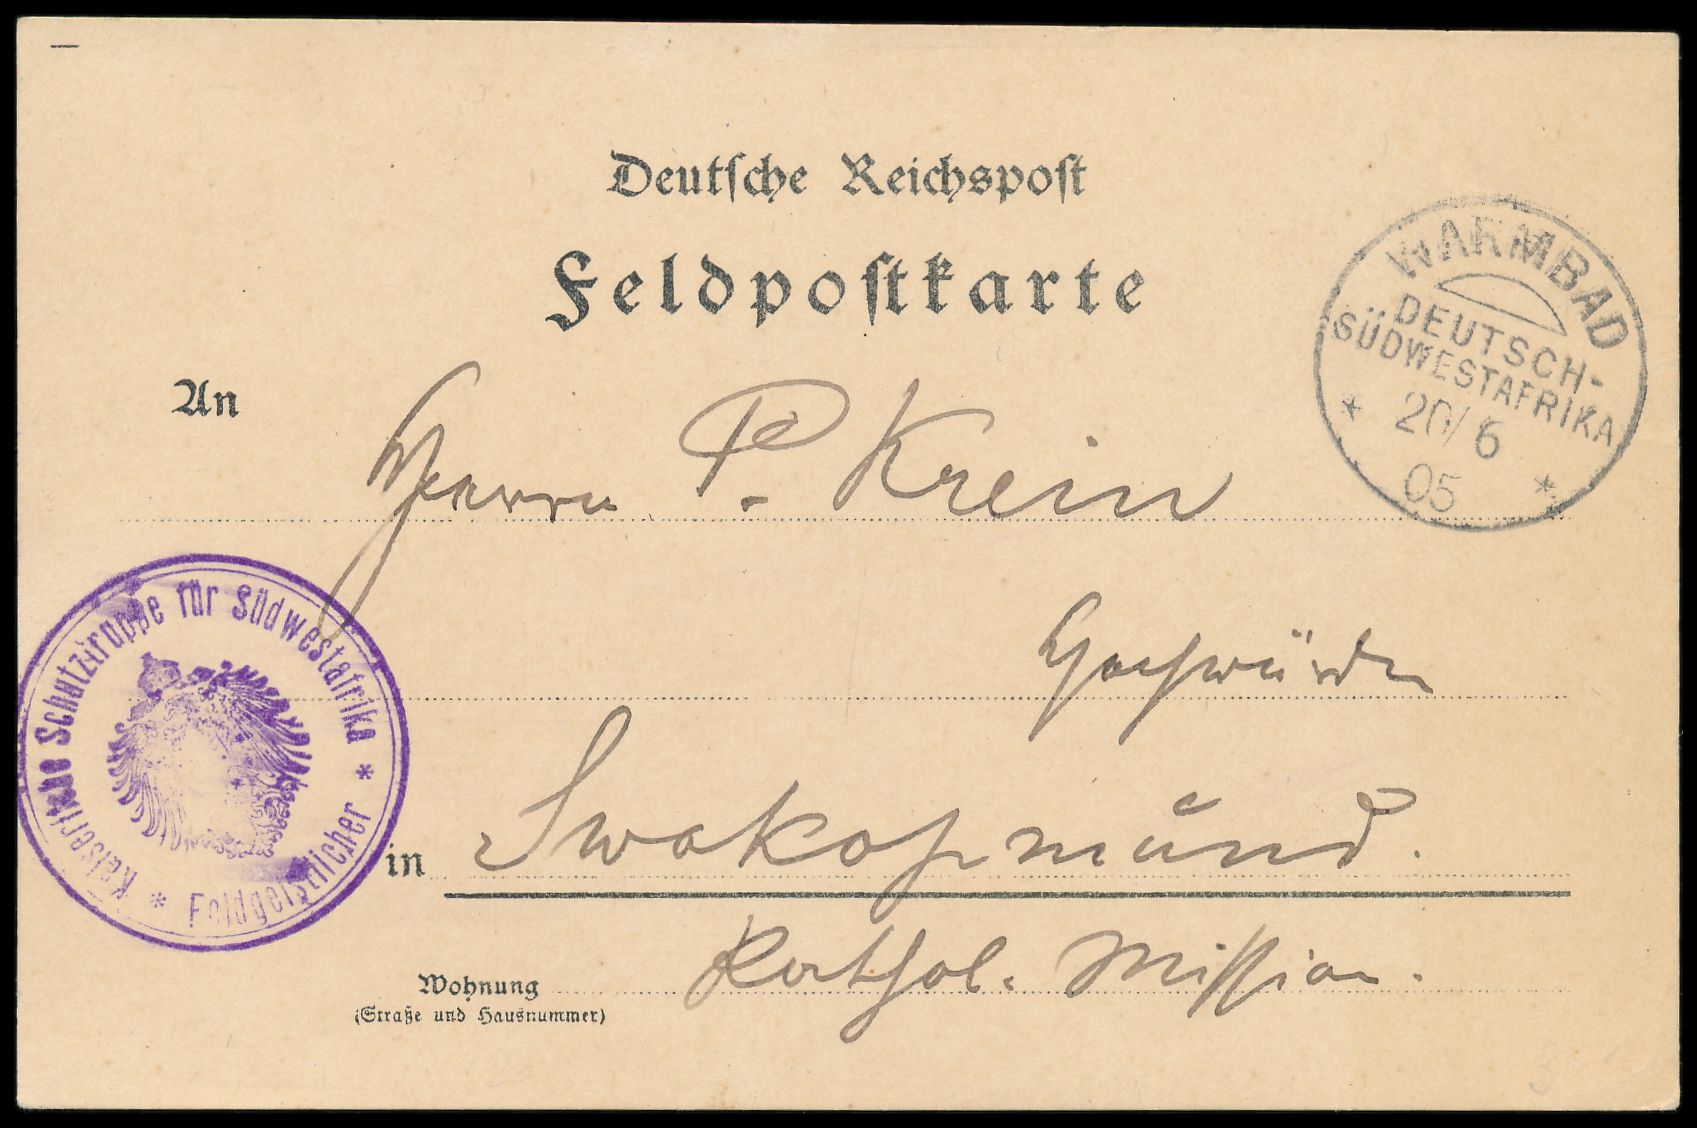 Deutsche Reichspost
Feldpostkarte
WARMBAD
DEUTSCH-
SÜDWESTAFRIKA
20/6
05
An
Herrn P. Krein
Hochwürden
Kaiserliche Schutztruppe für Südwestafrika * Feldgeistlicher *
in Swakopmund.
Kathol. Mission.
Wohnung
(Straße und Hausnummer)